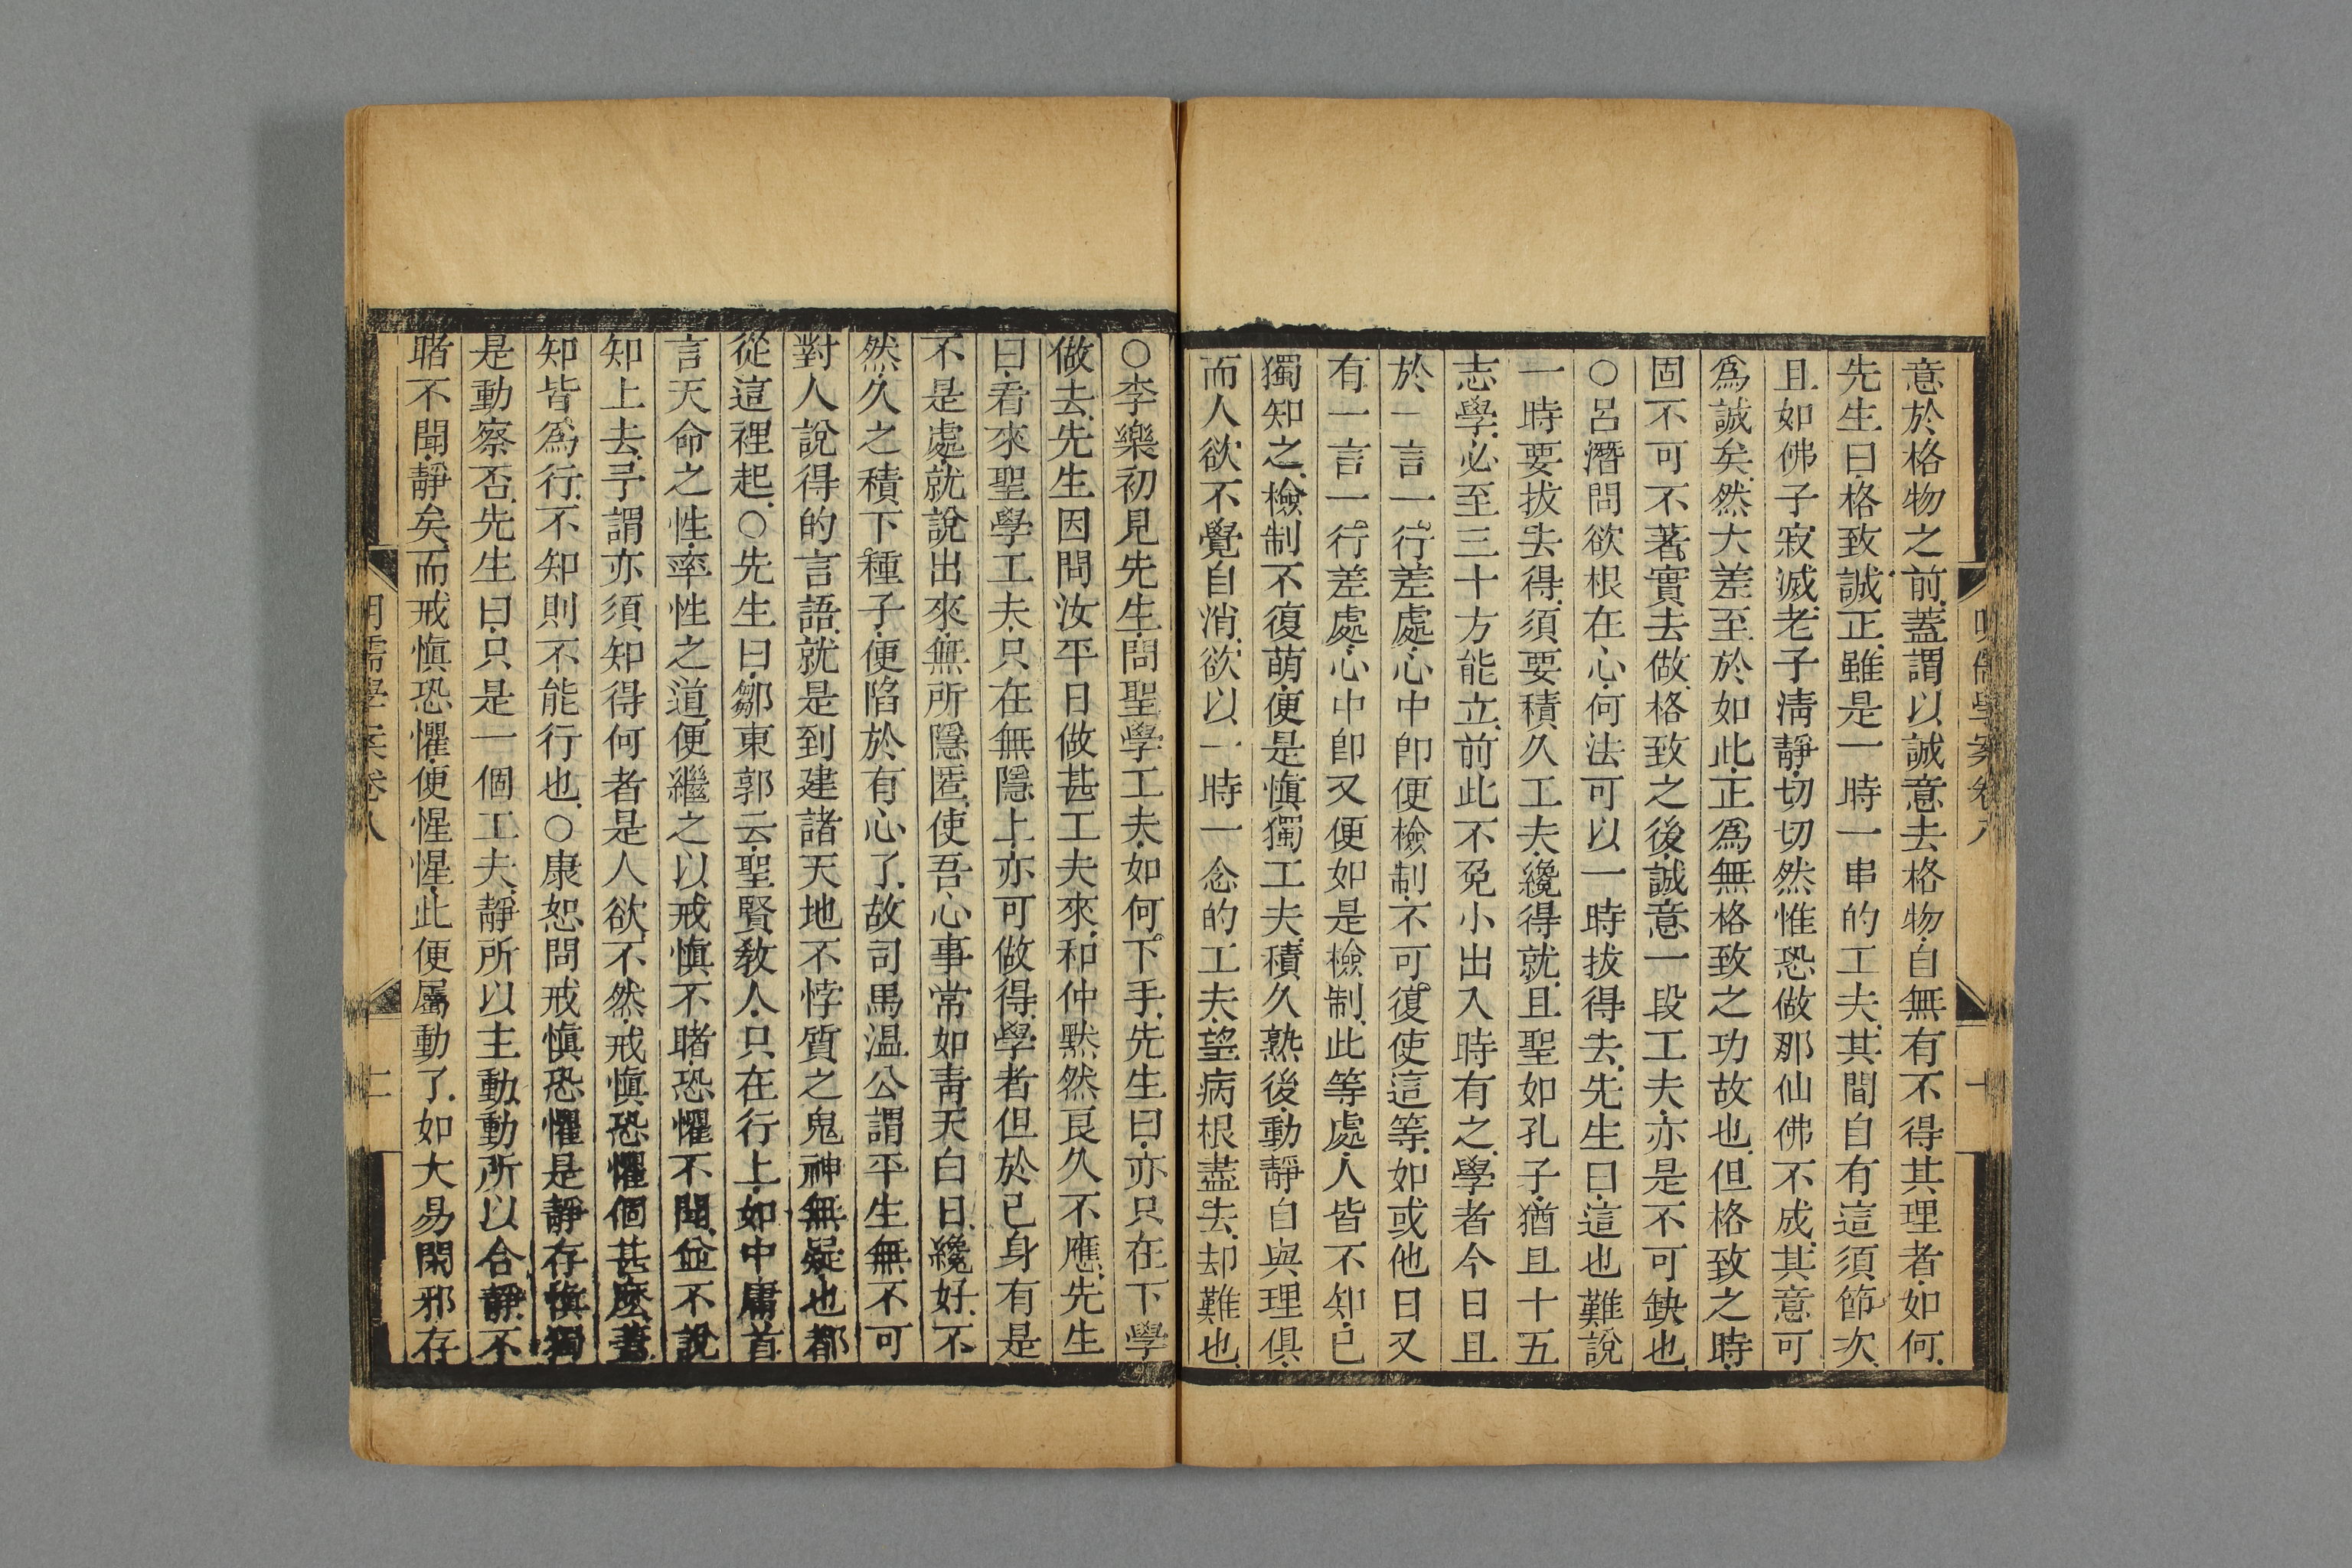 意於格物之前蓋謂以誠意去格物自無有不得其理者如何
先生曰格致誠正雖是一時一串的工夫其間自有這須節次
且如佛子寂滅老子淸靜切切然惟恐做那仙佛不成其意可
爲誠矣然大差至於如此正爲無格致之功故也但格致之時
固不可不著實去做格致之後誠意一段工夫亦是不可缺也
○呂潛問欲根在心何法可以一時拔得去先生曰這也難說
一時要拔去得須要積久工夫纔得就且聖如孔子猶且十五
志學必至三十方能立前此不免小出入時有之學者今日且
於一言一行差處心中卽便檢制不可復使這等如或他日又
有一言一行差處心中卽又便如是檢制此等處人皆不知已
獨知之檢制不復萌便是愼獨工夫積久熟後動靜自與理俱
而人欲不覺自消欲以一時一念的工夫望病根盡去却難也
○李樂初見先生問聖學工夫如何下手先生曰亦只在下學
做去先生因問汝平日做甚工夫來和仲默然良久不應先生
曰看來聖學工夫只在無隱上亦可做得學者但於己身有是
不是處就說出來無所隱匿使吾心事常如靑天白日纔好不
然久之積下種子便陷於有心了故司馬温公謂平生無不可
對人說得的言語就是到建諸天地不悖質之鬼神無疑也都
從這裡起○先生曰鄒東郭云聖賢敎人只在行上如中庸首
言天命之性率性之道便繼之以戒愼不睹恐懼不聞並不說
知上去予謂亦須知得何者是人欲不然戒愼恐懼個甚麼蓋
知皆爲行不知則不能行也○康恕問戒愼恐懼是靜存愼獨
是動察否先生曰只是一個工夫靜所以主動動所以合靜不
睹不聞靜矣而戒愼恐懼便惺惺此便屬動了如大易閑邪存
明儒學案卷八